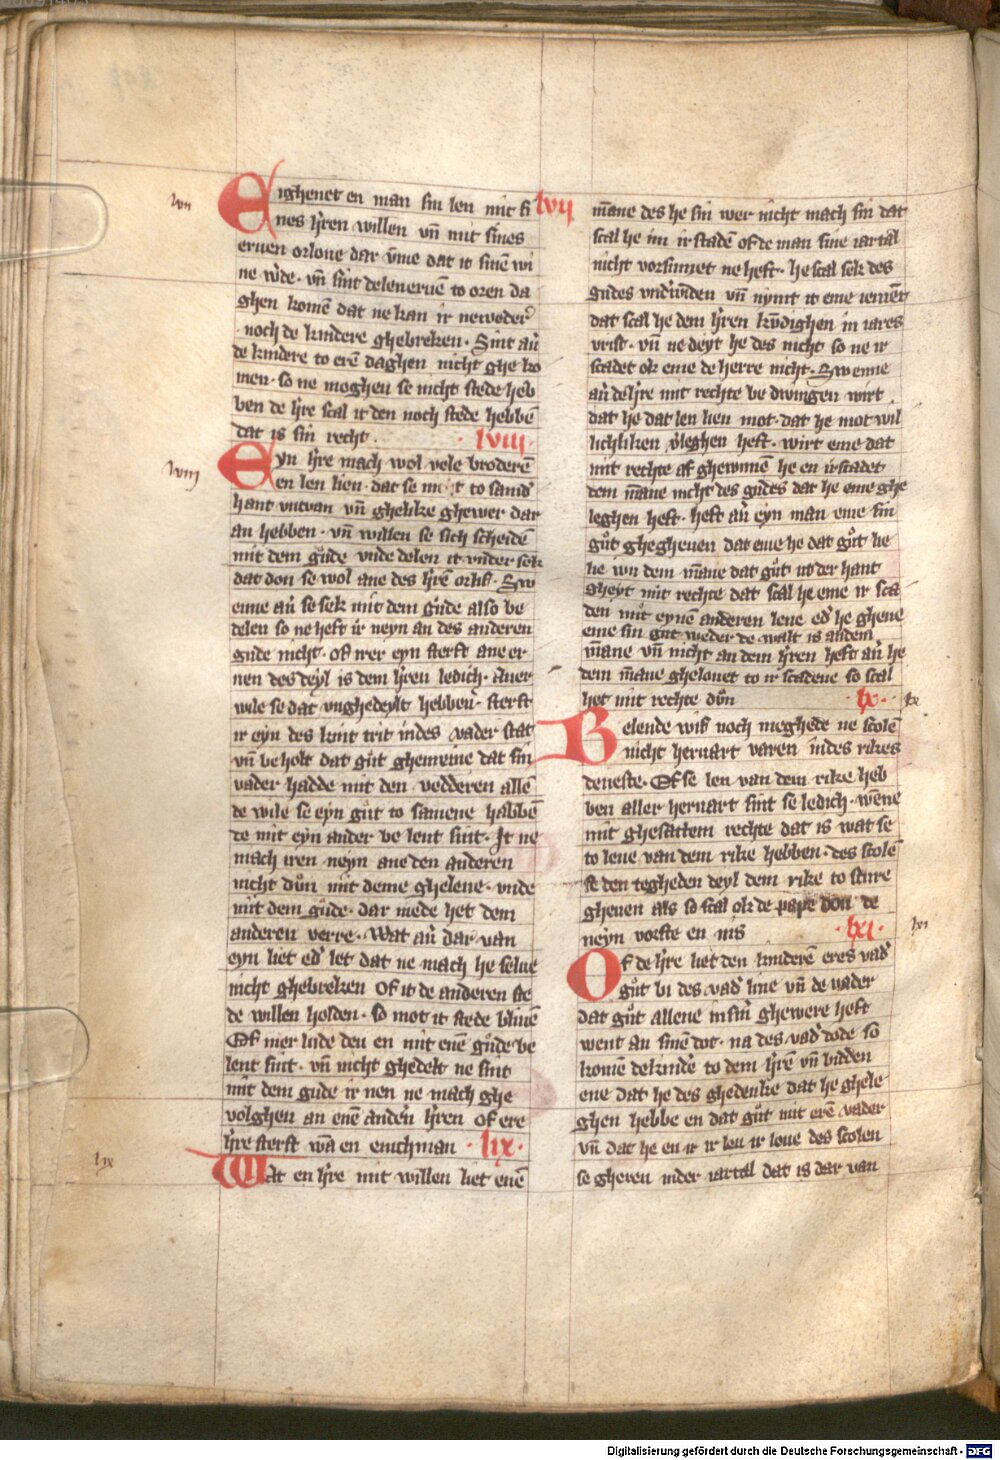 Eighenet en man sin len mit si lvii
nes h'ren willen vn̄ mit sines
eruen orloue dar v̄me dat it sinē wi
ne w'de · vn̄ sint deleneruē to oren da
ghen komē dat ne kan ir newoder'
noch de kindere ghebreken · Sint au'
de kindere to erē daghen nicht ghe ko
men · so ne moghen se nicht stede heb
ben de h're scal it den noch stede hebbē
dat is sin recht · lviii ·
Eyn h're mach wol vele broderē
en len lien · dat se mit to samd'
hant vntvan vn̄ ghelike ghewer dar
an hebben · vn̄ willen se sich scheidē
mit dem gůde vnde delen it vnder sek
dat don se wol ane des h'rē orlif · Sw
enne au' se sek mit dem gude also be
delen so ne heft ir neyn an des anderen
gude nicht · of irer eyn sterft ane er
nen des deyl is dem h'ren ledich · Auer
wile se dat vnghedeylt hebben · sterft
ir eyn des kint trit indes vader stat
vn̄ beholt dat gůt ghemeine dat sin
vader hadde mit den vedderen allē
de wile se eyn gůt to samene habbē
de mit eyn ander be lent sint · It ne
mach iren neyn ane den anderen
nicht důn mit deme ghelene · vnde
mit dem gůde · dar mede het dem
anderen verre · Wat au' dar van
eyn liet ed' let dat ne mach he selue
nicht ghebreken Of it de anderen ste
de willen holden · so mot it stede bliuē
Of mer lude den en mit enē gůde be
lent sint · vn̄ nicht ghedelt ne sint
mit dem gude ir nen ne mach ghe
volghen an enē anden h'ren Of ere
h're sterft wā en enichman · lix ·
Wat en h're mit willen liet enē
m̄ane des he sin wer nicht mach sin dat
scal he im ir stadē of de man sine iartal
nicht vorsumet ne heft · he scal sek des
gudes vnd'winden vn̄ nymt it eme iemēt
dat scal he dem h'ren kūdighen in iares
vrist · vn̄ ne deyt he des nicht so ne ir
stadet ok eme de herre nicht · Swenne
au' de h're mit rechte be dwingen wirt
dat he dat len lien mot · dat he mot wil
lichliken v'leghen heft · wirt eme dat
mit rechte af ghewunnē he en irstadet
dem m̄ane nicht des gudes dat he eme ghe
leghen heft · heft au' eyn man eme sin
gůt ghegheuen dat eme he dat gůt lie
he wn dem m̄ane dat gůt ut der hant
gheyt mit rechte dat scal he eme ir sta
den mit eynē anderen lene ed' he gheue
eme sin gut weder de walt is andem
m̄ane vn̄ nicht an dem h'ren heft au' he
dem m̄ane ghelouet to ir stadene so scal
het mit rechte důn · lx ·
Belende wif noch meghede ne scolē
nicht heruart varen indes rikes
deneste · Of se len van dem rike heb
ben aller heruart sint se ledich · wēne
mit ghesattem rechte dat is wat se
to lene van dem rike hebben · des scolē
se den tegheden deyl dem rike to sture
gheuen als so scal ok de pape don de
neyn vorste en nis · lxi ·
Of de h're liet den kinderē eres vad'
gůt bi des vad' liue vn̄ de vader
dat gůt allene in sin' ghewere heft
went an sinē dot · na des vad' dode so
komē de kinde' to dem h'rē vn̄ bidden
ene dat he des ghedenke dat he ghele
ghen hebbe en dat gůt mit erē vader
vn̄ dat he en ir ir len ir loue des scolen
se gheren inder iartal dat is dar van
lvii
lviii
lix
lx
lxi
Digitalisierung gefördert durch die Deutsche Forschungsgemeinschaft - DFG